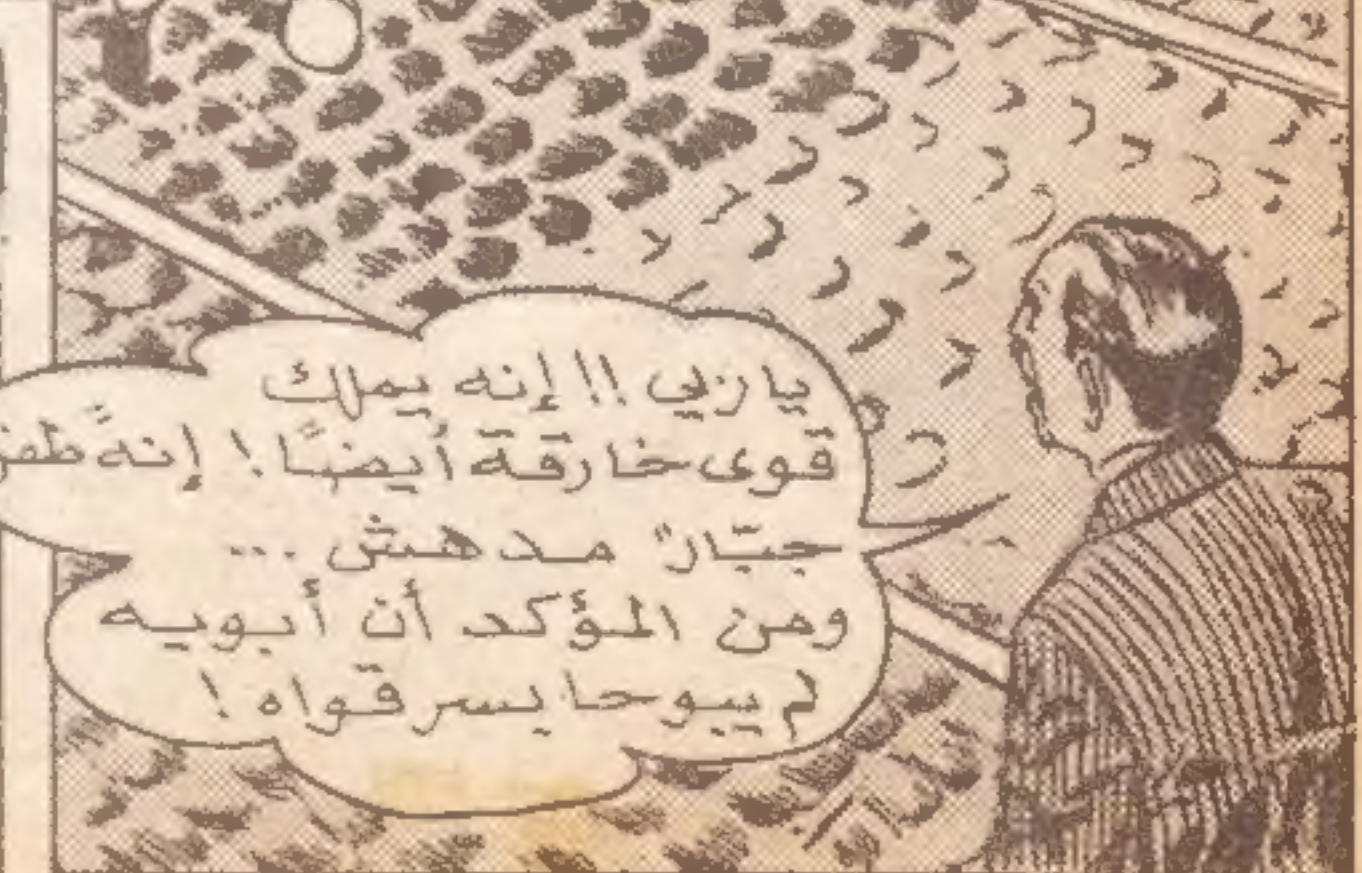 يا ربي !! إنه يملك
قوى خارقة أيضًا ! إنه
جبّار مدهش ...
ومن المؤكد أن أبويه
لم يبوحا بسر قواه !